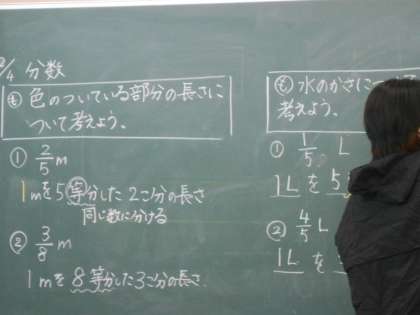 /4 分数
も 色のついている部分の長さに
ついて考えよう。
① 2/5 m
1mを5等分した2こ分の長さ
同じ数に分ける
② 3/8 m
1mを8等分した3こ分の長さ
も 水のかさに
考えよう。
① 1/5 L
1Lを5
② 4/5 L
1Lを